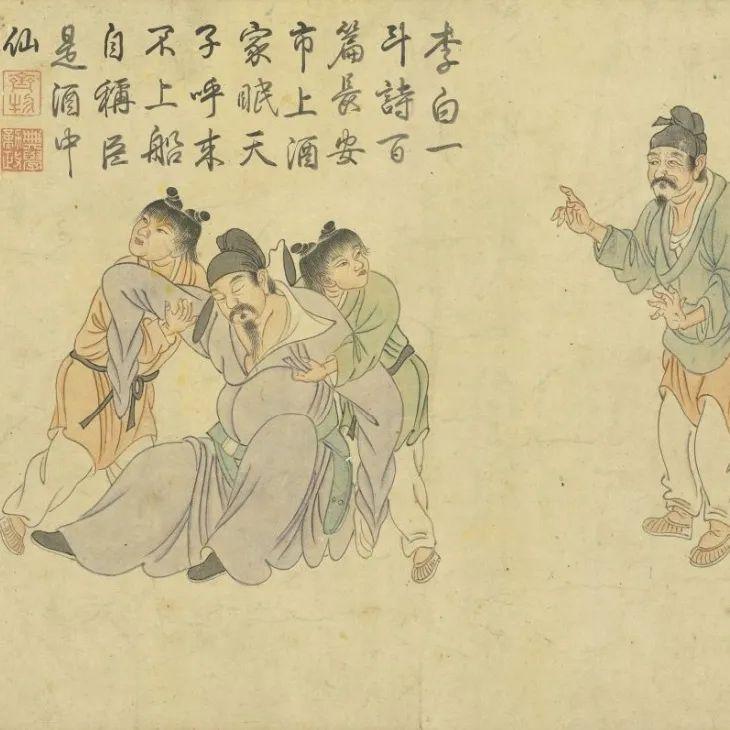 李白一
斗詩百
篇長安
市上酒
家眠天
子呼来
不上船
自稱臣
是酒中
仙